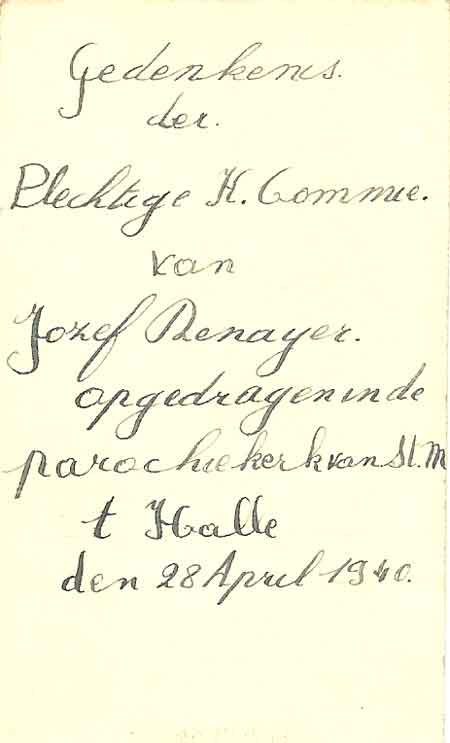 Gedenkenis.
der.
Plechtige H. Commie.
van
Jozef Denayer.
opgedragen in de
parochiekerk van St. M
t Halle
den 28 April 1940.